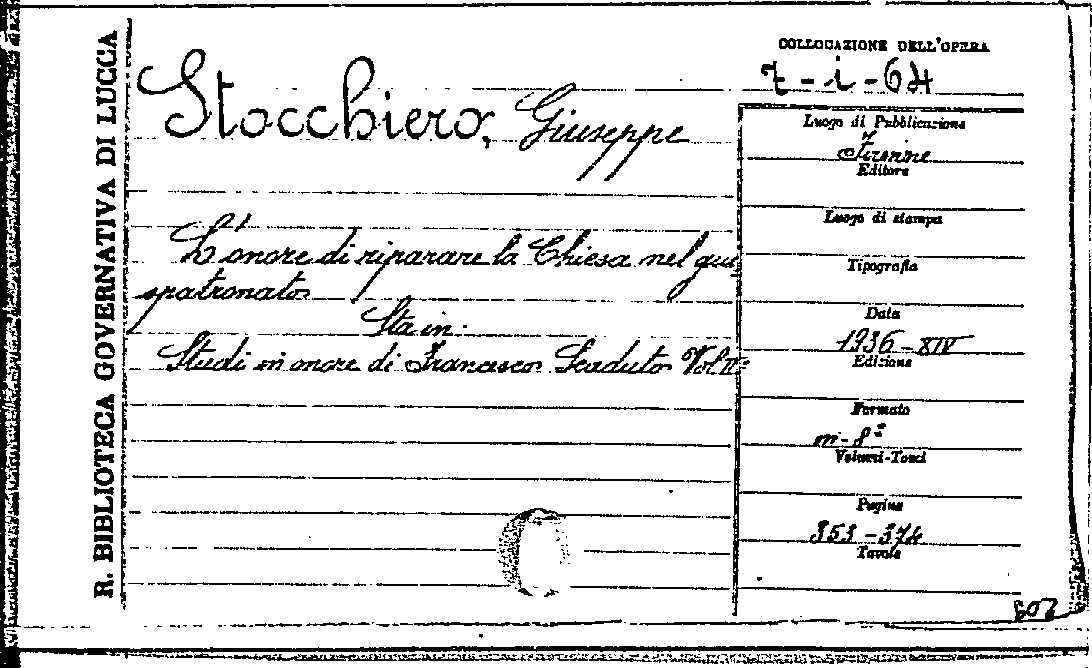 R. BIBLIOTECA GOVERNATIVA DI LUCCA
Stocchiero, Giuseppe
L'onore di riparare la Chiesa nel giu
spatronato
Sta in:
Studi in onore di Francesco Scaduto Vol II:
COLLOCAZIONE DELL'OPERA
7-i-64
Luogo di Pubblicazione
Firenze
Editore
Luogo di stampa
Tipografia
Data
1936-XIV
Edizione
Formato
in-8º
Volumi-Tomi
Pagine
353-374
Tavole
807